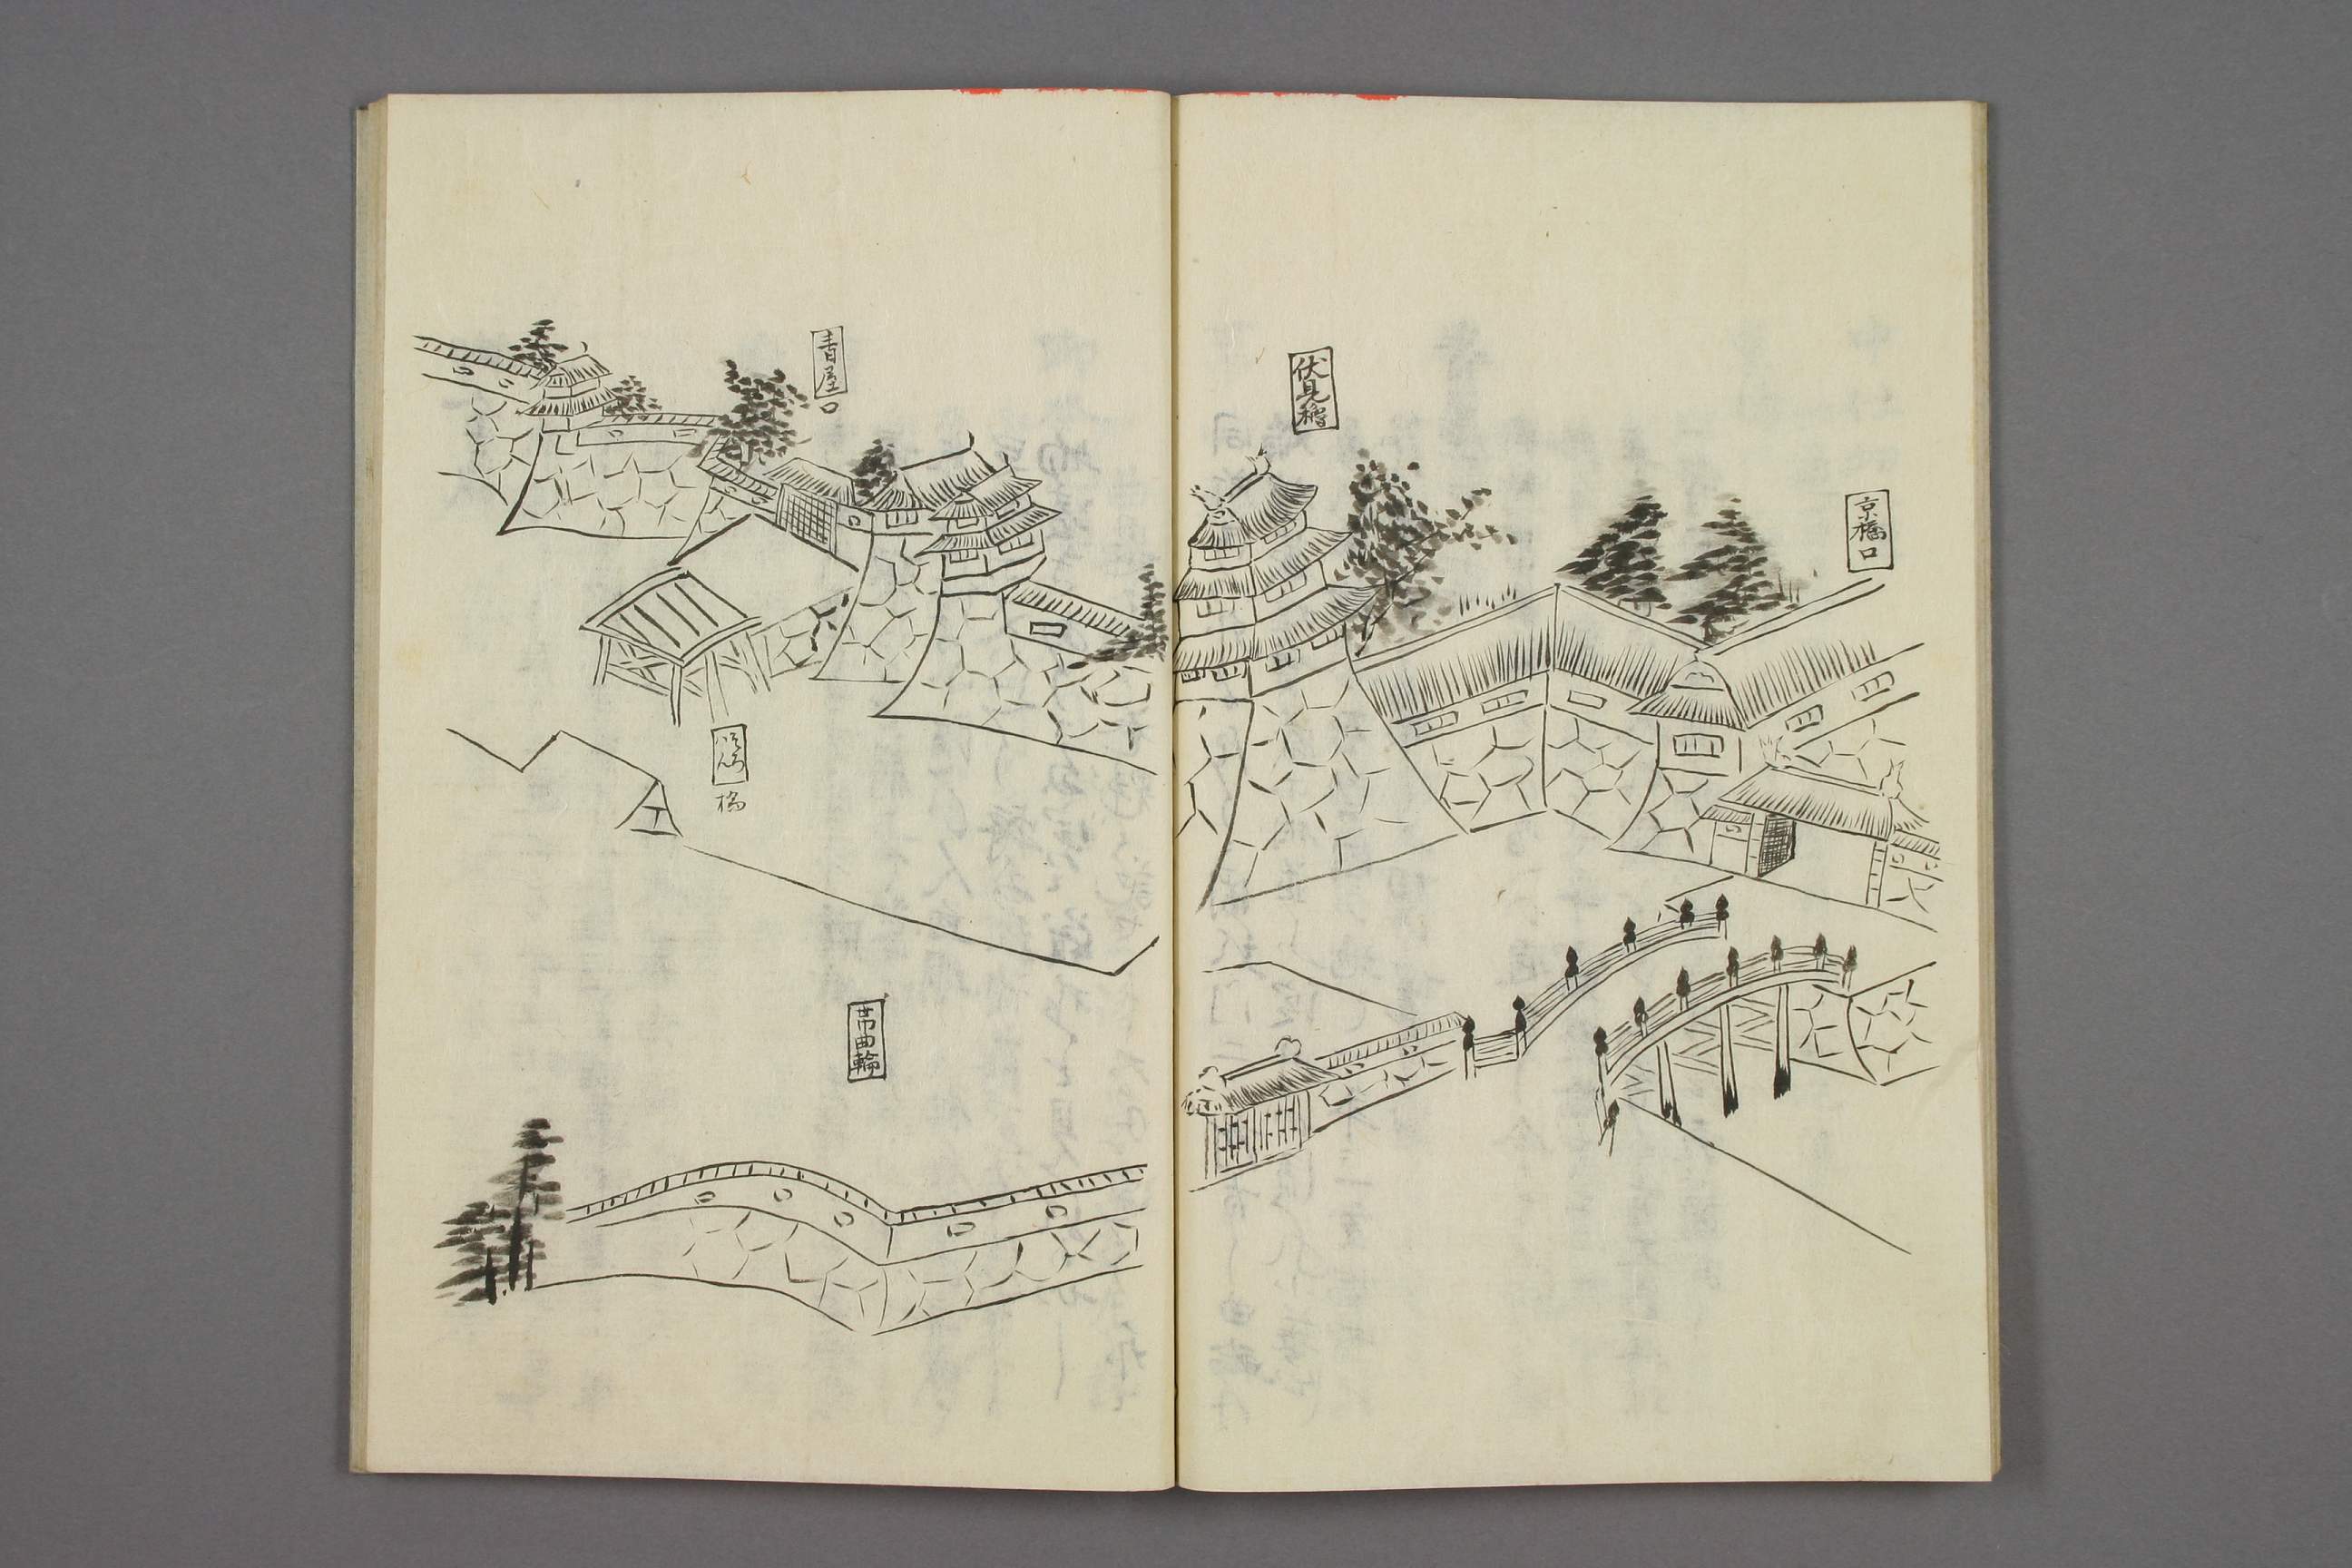 京橋口
伏見櫓
青屋口
橋
帯曲輪